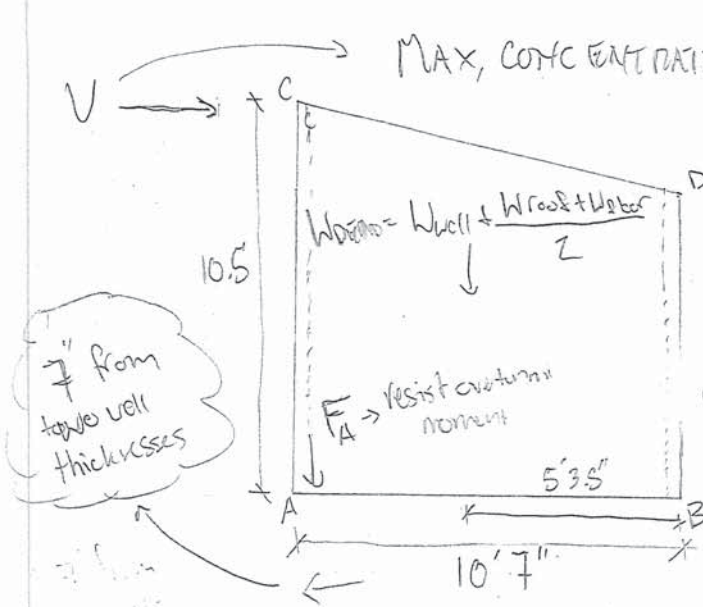 MAX, CONCENTRATI
V
C
C
D
W = Wwall + Wroof + W
2
10.5'
7" from
two wall
thicknesses
F_A → resist overturn
moment
5'3.5"
A
B
10'7"